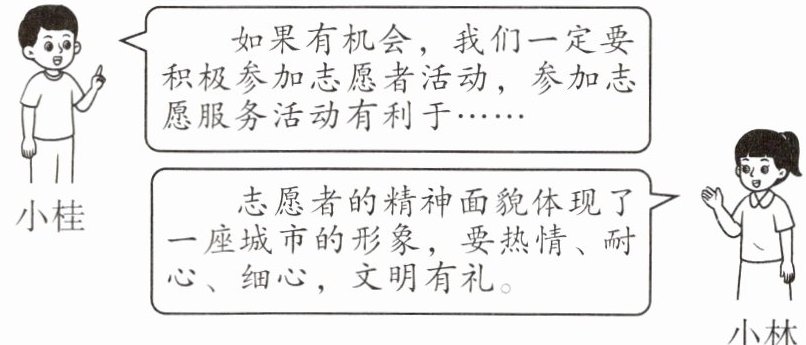 如果有机会，我们一定要
积极参加志愿者活动，参加志
愿服务活动有利于……
小桂
志愿者的精神面貌体现了
一座城市的形象，要热情、耐
心、细心，文明有礼。
小林